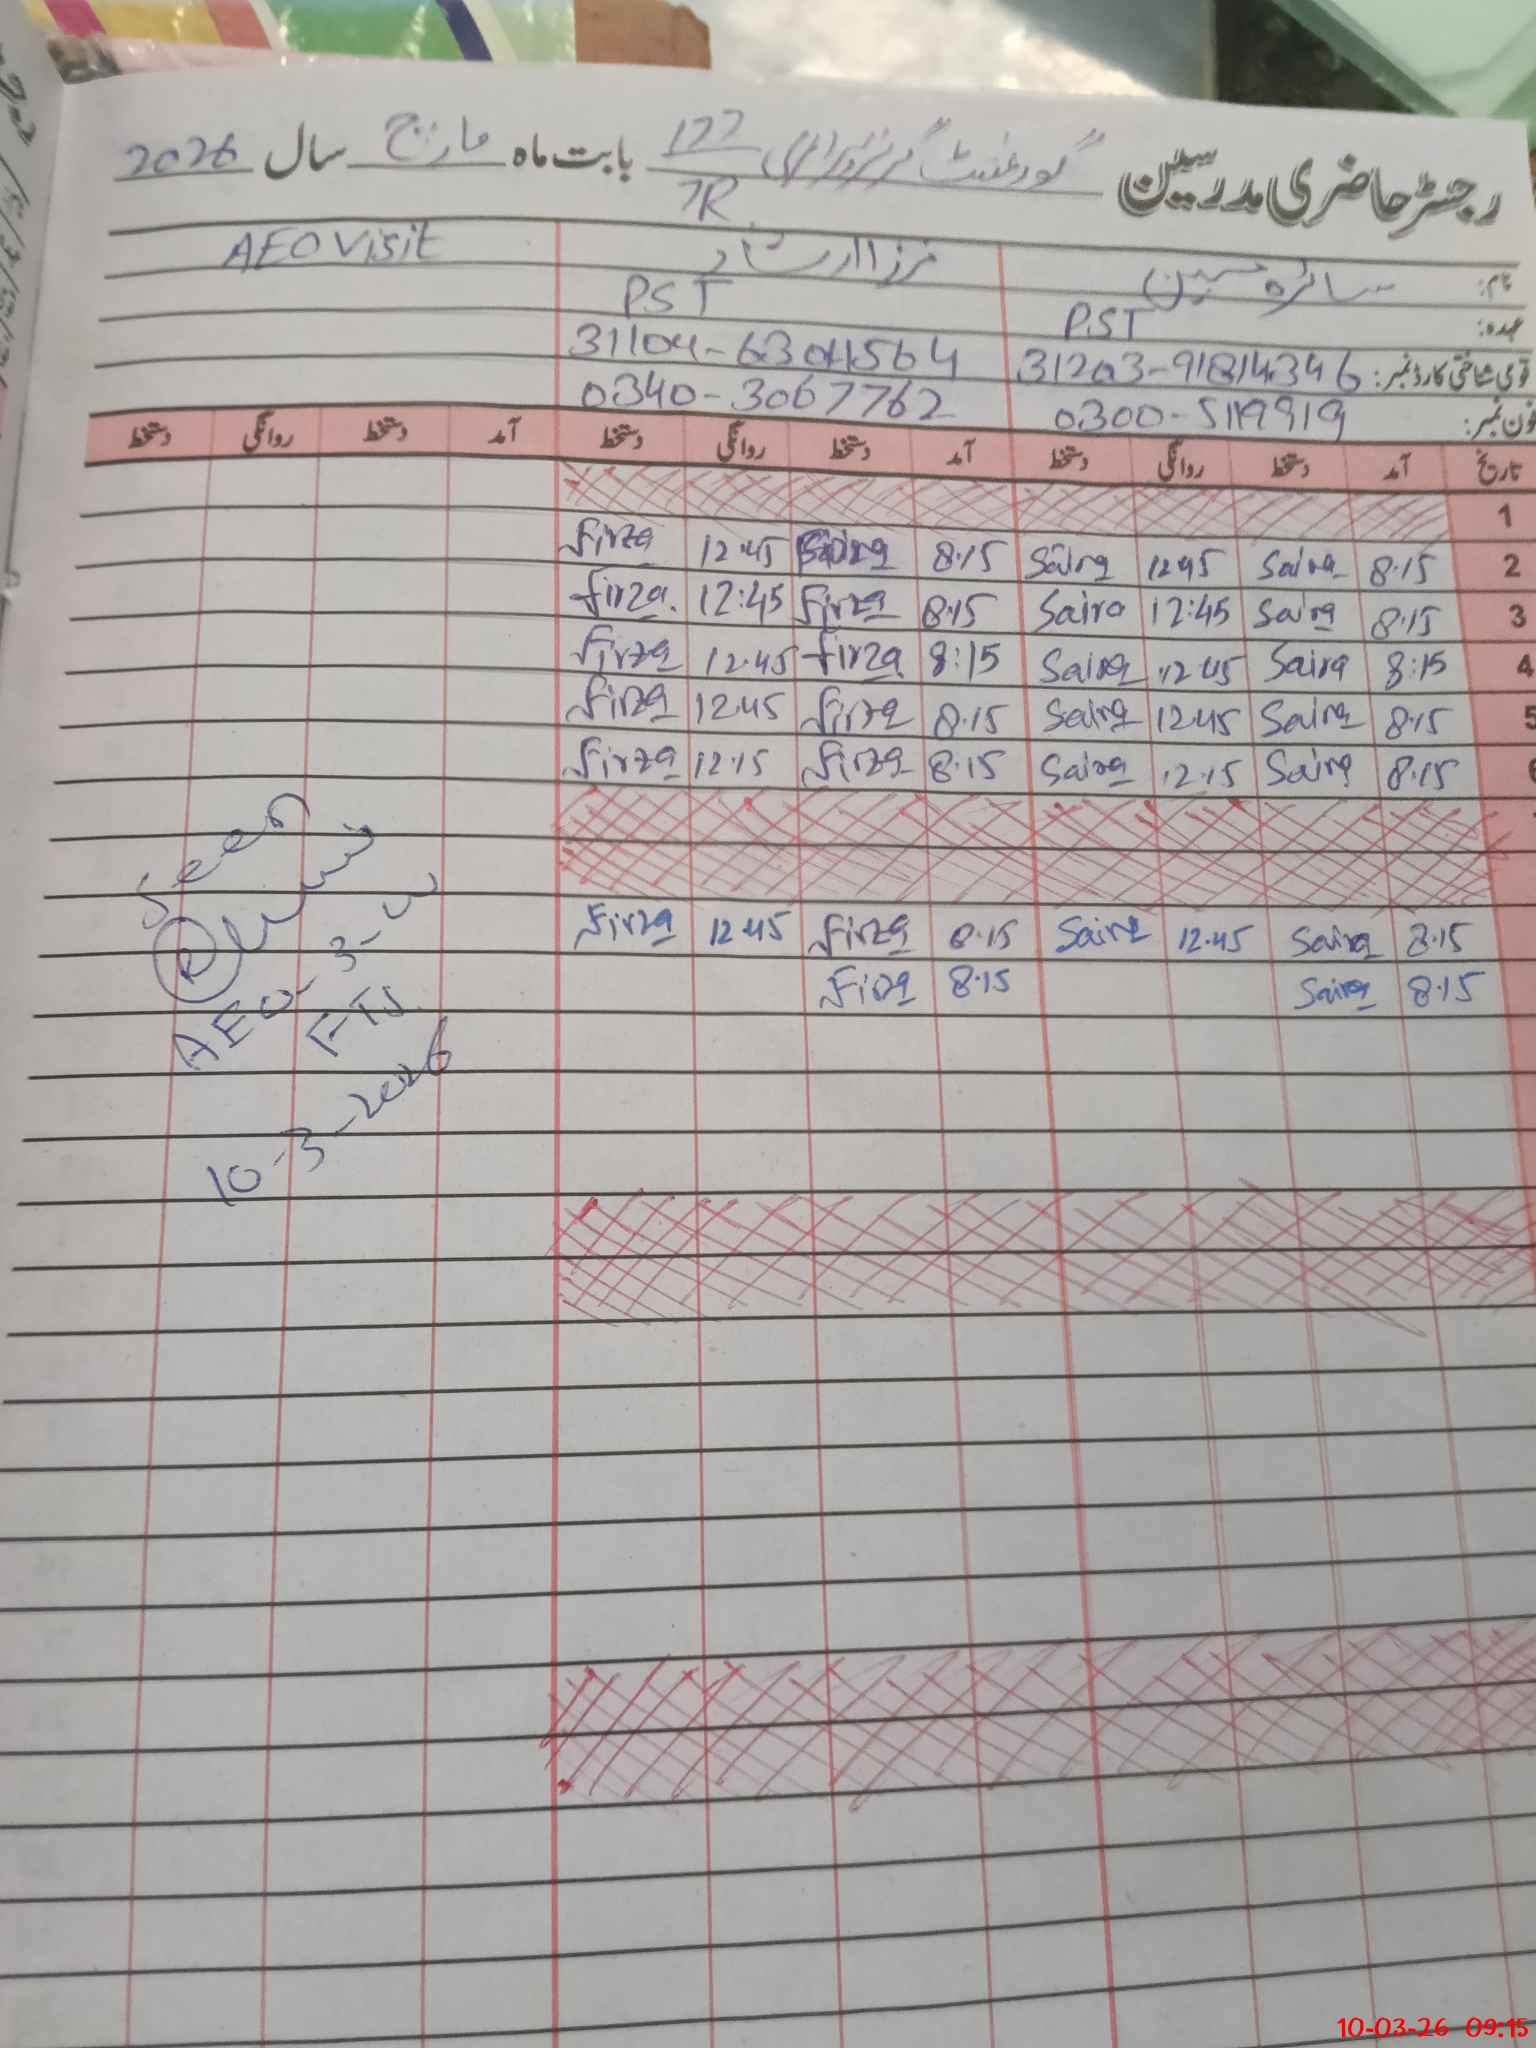 رجسٹر حاضری مدرسین گورنمنٹ گرلز پرائمری 122 بابت ماہ مارچ سال 2026
7R
نام: سائرہ حسین فرزا ارشاد AEO Visit
عہدہ: PST PST
قومی شناختی کارڈ نمبر: 31203-91814346 31104-63041564
فون نمبر: 0300-5119919 0340-3067762
تاریخ آمد دستخط روانگی دستخط آمد دستخط روانگی دستخط آمد دستخط روانگی دستخط
1
2 8.15 Saira 12.45 Saira 8.15 12.45 Firza
3 8.15 Saira 12:45 Saira 8.15 Firza 12:45 Firza
4 8:15 Saira 12.45 Saira 8:15 Firza 12.45 Firza
5 8.15 Saira 12.45 Saira 8.15 Firza 12.45 Firza
6 8.15 Saira 12.15 Saira 8.15 Firza 12.15 Firza
8.15 Saira 12.45 Saira 8.15 Firza 12.45 Firza
8.15 Saira 8.15 Firza
Seen
R
AEO-3-W
FTS
10-3-2026
10-03-26 09:15